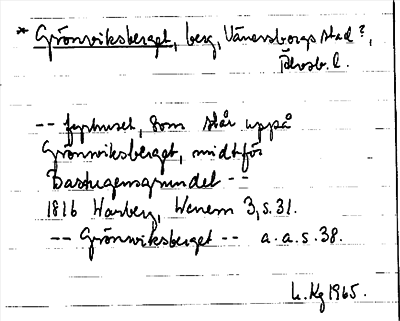 * Grönviksberget, berg, Vänersborgs stad?,
Älvsb. l.
-- fyrhuset, som står uppå
Grönwiksberget, midtför
Bastugugrundet --
1816 Warberg, Wenern 3, s. 31.
-- Grönwiksberget -- a.a.s. 38.
L. Kg 1965.